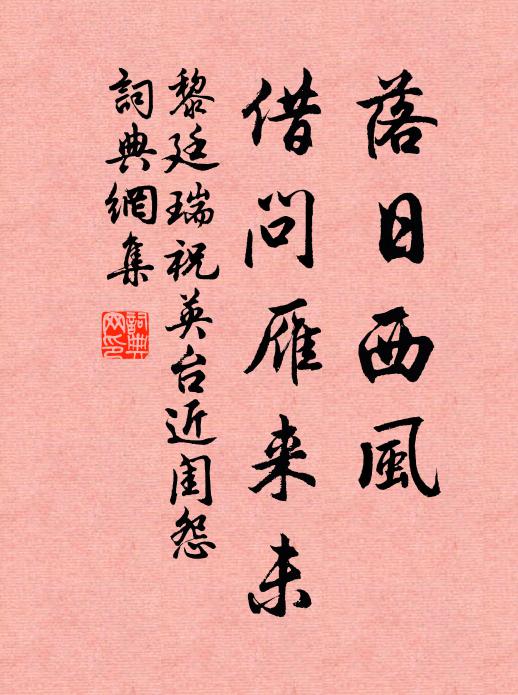 落日西風
借問雁来未
黎廷瑞祝英台近閨怨
詞典網集
詞典
网印